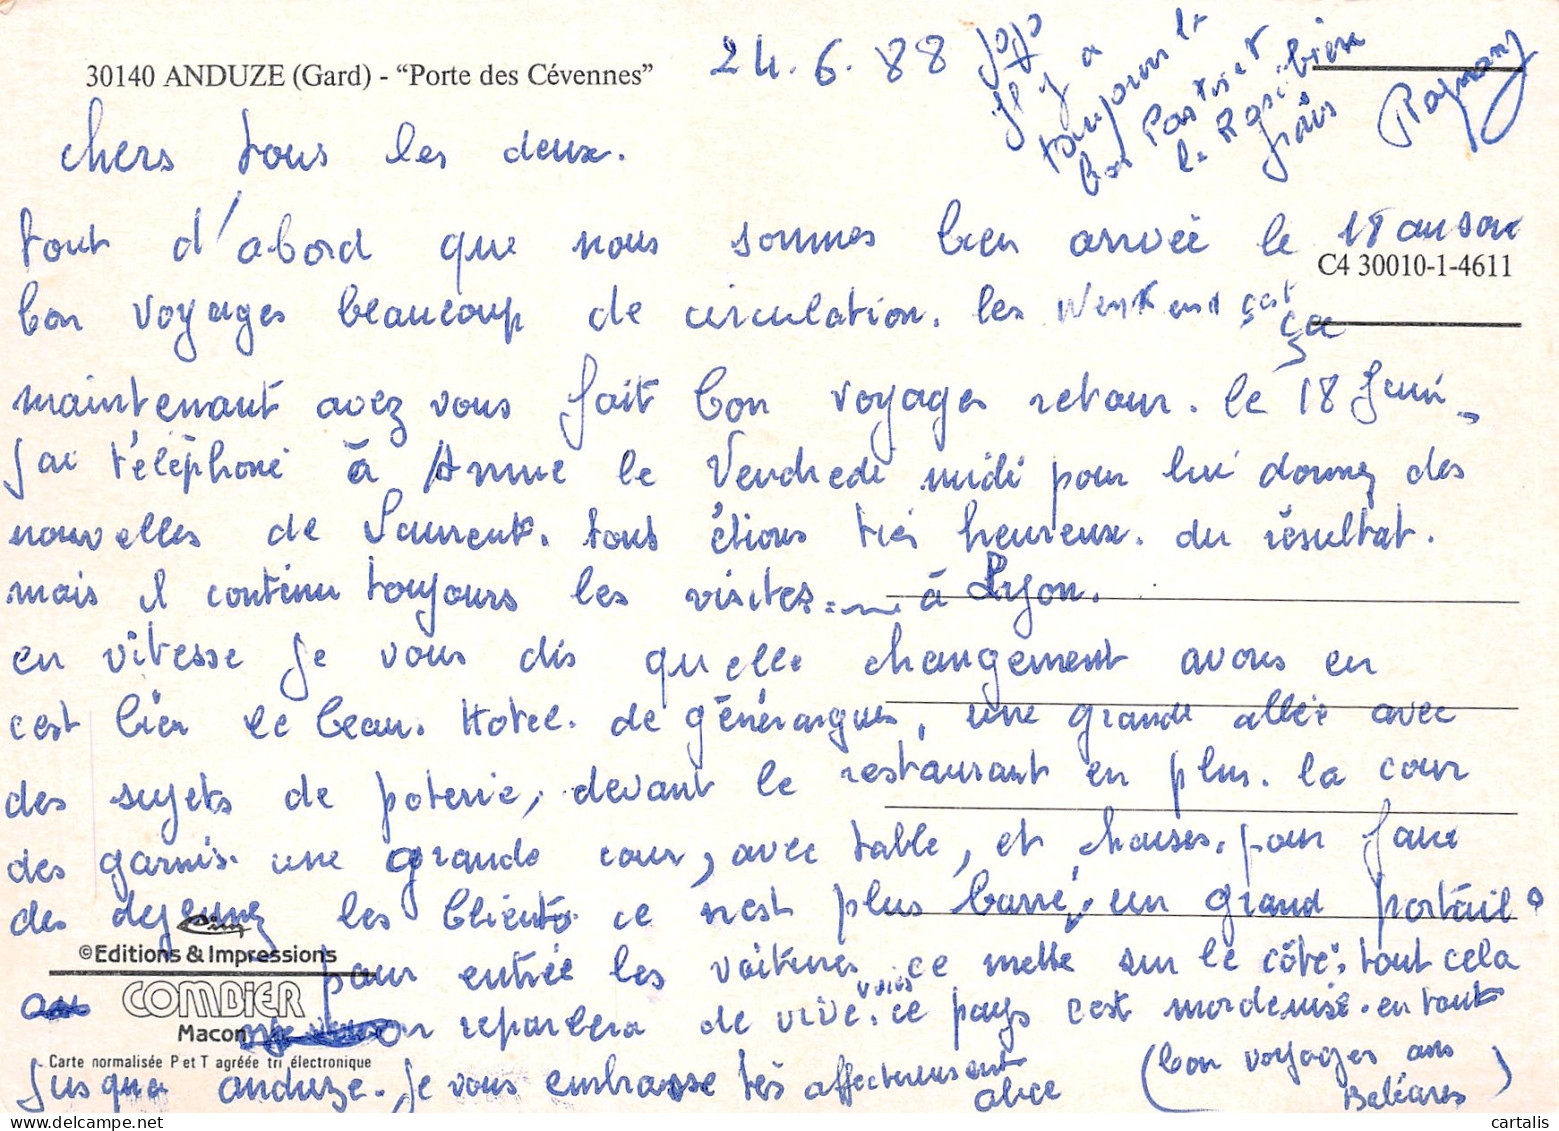 30140 ANDUZE (Gard) - “Porte des Cévennes”
24.6.88
jojo
il y a
toujours le
bon Pastis et
le Rosé bien
frais
chers tous les deux.
tout d'abord que nous sommes bien arrivée le 18 au soir
C4 30010-1-4611
bon voyages beaucoup de circulation. les
maintenant avez vous fait bon voyages retour. le 18 Juin
J'ai téléphoné à Anne le Vendredi midi pour lui donnez des
nouvelles de Laurent. tous étions très heureux. du résultat.
mais il continu toujours les visites à Lyon.
en vitesse je vous dis quelle changement avons en
c'est bien le beau. Hotel. de générargues, une grande allée avec
des sujets de poterie, devant le restaurant en plus. la cour
des garnis. une grande cour, avec table, et chaises. pour faire
des dejeunez les Clients. ce n'est plus barré, un grand portail
©Editions & Impressions
pour entrée les voitures ce mette sur le côté. tout cela
COMBIER
Macon
on reparlera de vive voies. ce pays c'est mordenisé. en tout
Carte normalisée P et T agréée tri électronique
jusqua anduze. je vous embrasse très affectueusement
alice
(bon voyages aux
Baléares)
cartalis